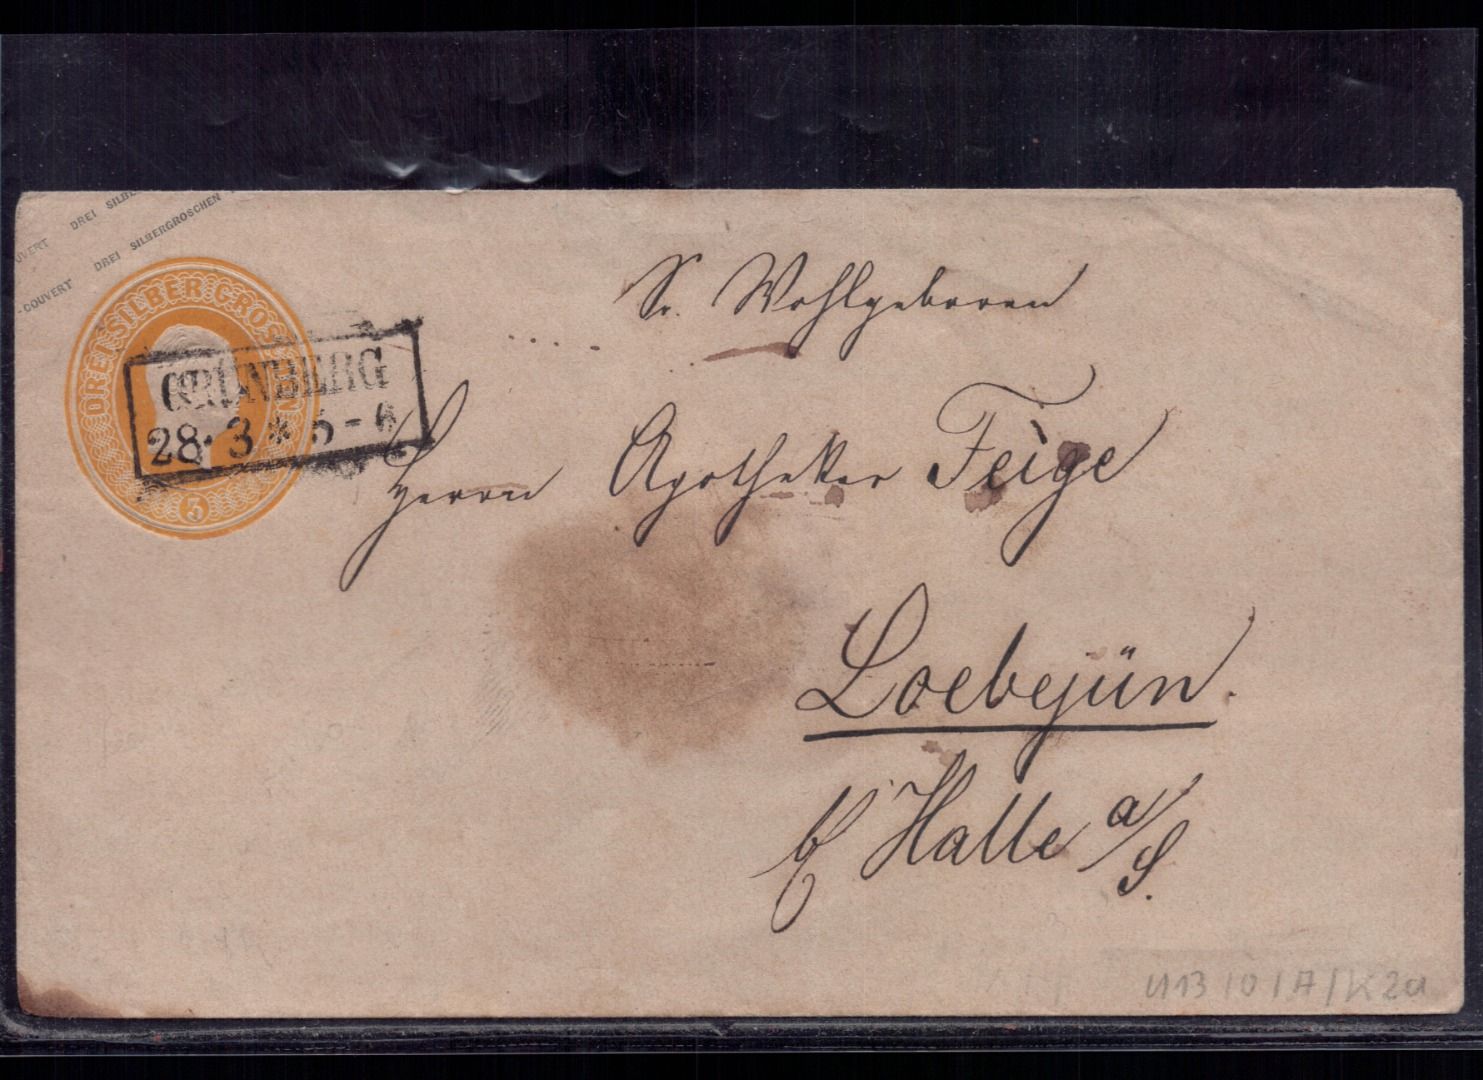 DREI SILB
UVERT
DREI SILBERGROSCHEN
-COUVERT
DREI SILBER GROSCHEN
3
GRÜNBERG
28. 3 * 5-6
Sr. Wohlgeboren
Herrn Apotheker Feige
Loebejün.
b/ Halle a/S.
U13 / 0 / A / K 2a